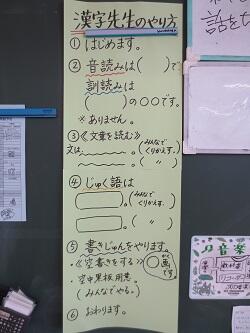 漢字先生のやり方
① はじめます。
② 音読みは( )で
訓読みは
( )の○○です。
※ありません。
③ 《文章を読む》
文は、 。(みんなでくりかえす。)
。( 〃 )
④ じゅく語は
。(みんなでくりかえす。)
。( 〃 )
⑤ 書きじゅんをやります。
・《空書きをする》 かく画です。
・空中黒板用意。
(みんなでやる。)
⑥ おわります。
話をち
の音楽